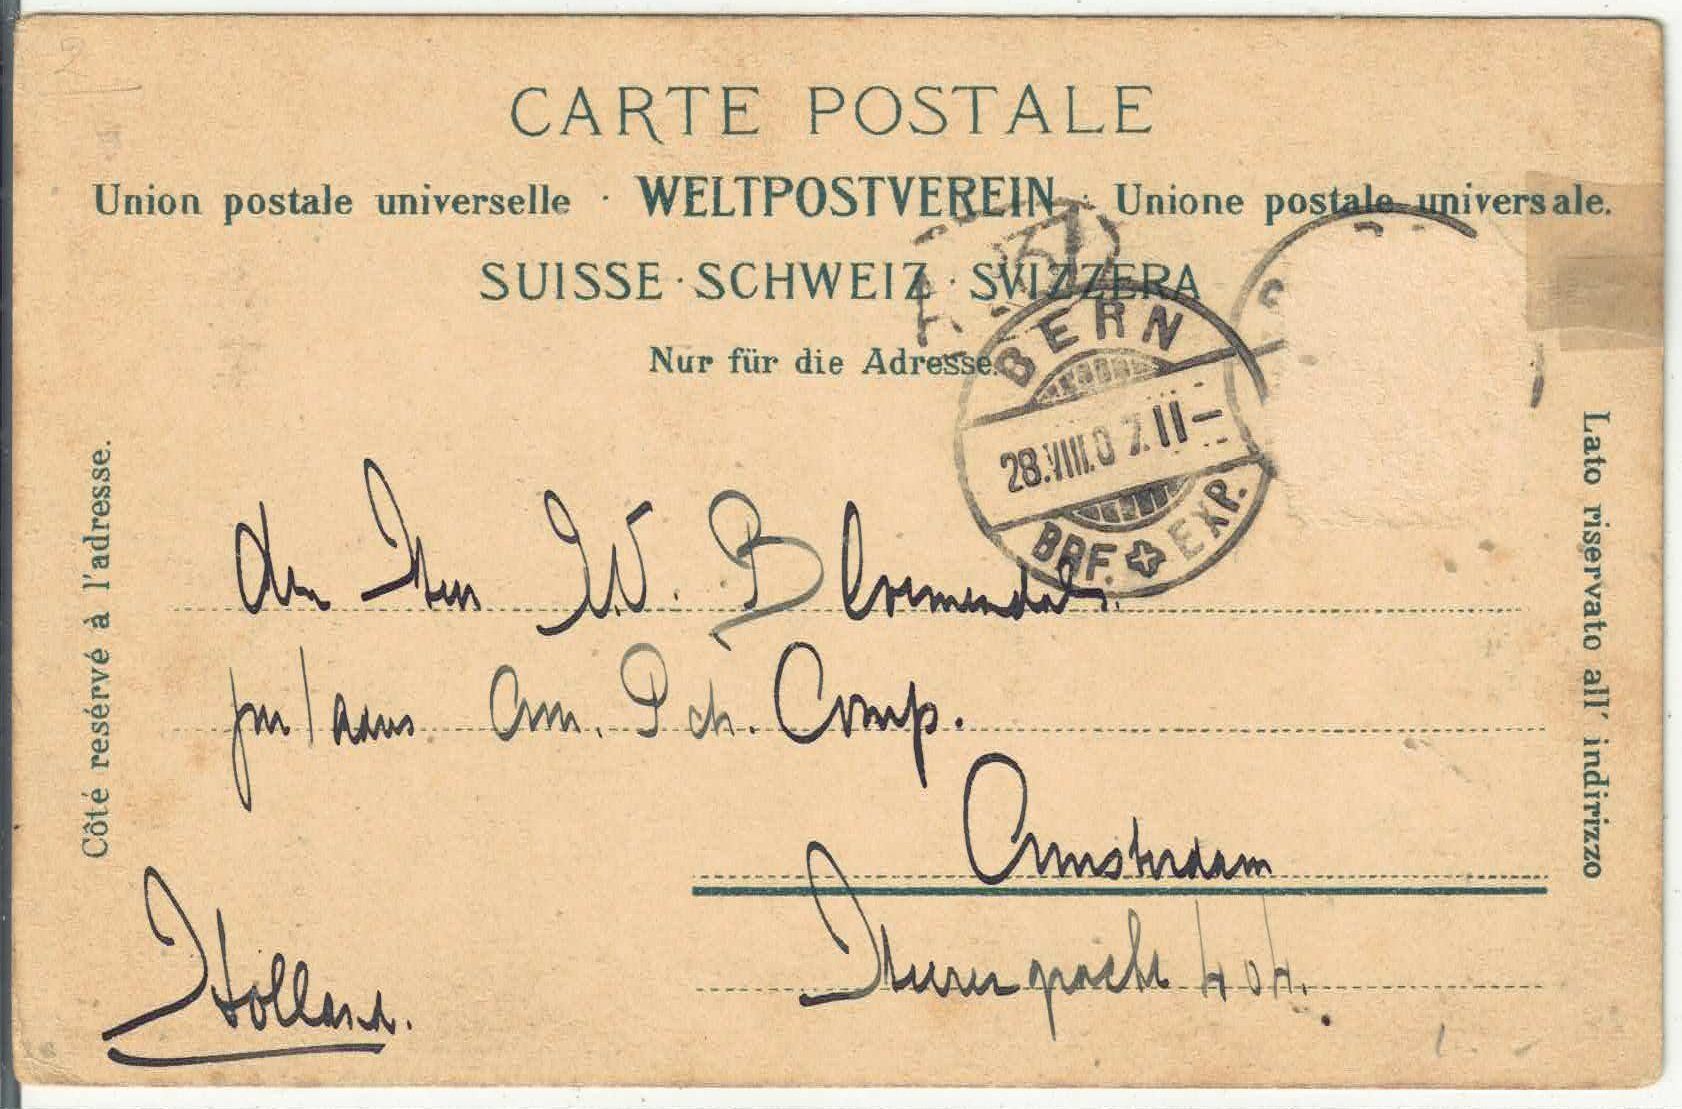 CARTE POSTALE
Union postale universelle · WELTPOSTVEREIN · Unione postale universale.
SUISSE · SCHWEIZ · SVIZZERA
Nur für die Adresse.
BERN
28.VIII.07.11-
BRF. EXP.
Côté resérvé à l'adresse.
Lato riservato all' indirizzo
den Heer W. Bloemendal.
p/m/ Comp.
Amsterdam
Heerengracht 404.
Holland.
2